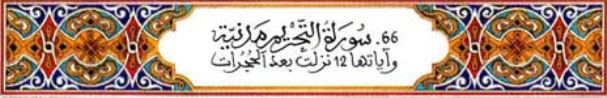 66. سُورَةُ التَّحْرِيمِ مَدَنِيَّة
وآياتها 12 نزلت بعد الحُجُرات